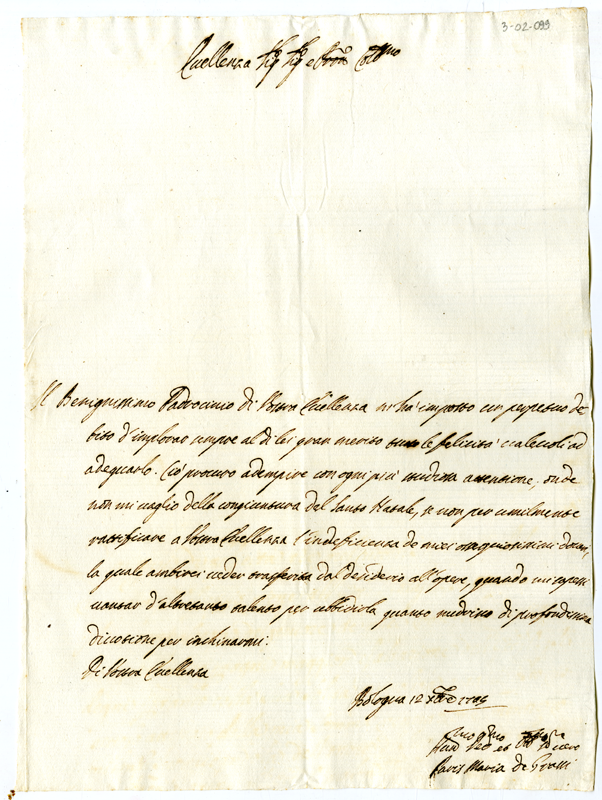 3-02-099
Eccellenza Sig. Sig. e Pron Col.mo
Il Benignissimo Padrocinio di Vostra Eccellenza mi hà imposto un perpetuo de
bito d'implorar sempre al di lei gran merito tutte le felicità valevoli ad
adeguarlo. Ciò procuro adempire con ogni più studiosa attenzione, onde
non mi vaglio della congiuntura del Santo Natale, se non per umilmente
rattificare a Vostra Eccellenza l'indeficienza de miei ossequiosissimi doveri,
la quale ambirei veder trasferita dal desiderio all'opere, quando mi
d'altrettanto talento per ubbidirla quanto nudrisco di profondissima
divozione per inchinarmi.
Di Vostra Eccellenza
Bologna 12 Xbre
Paris Maria de Grassi